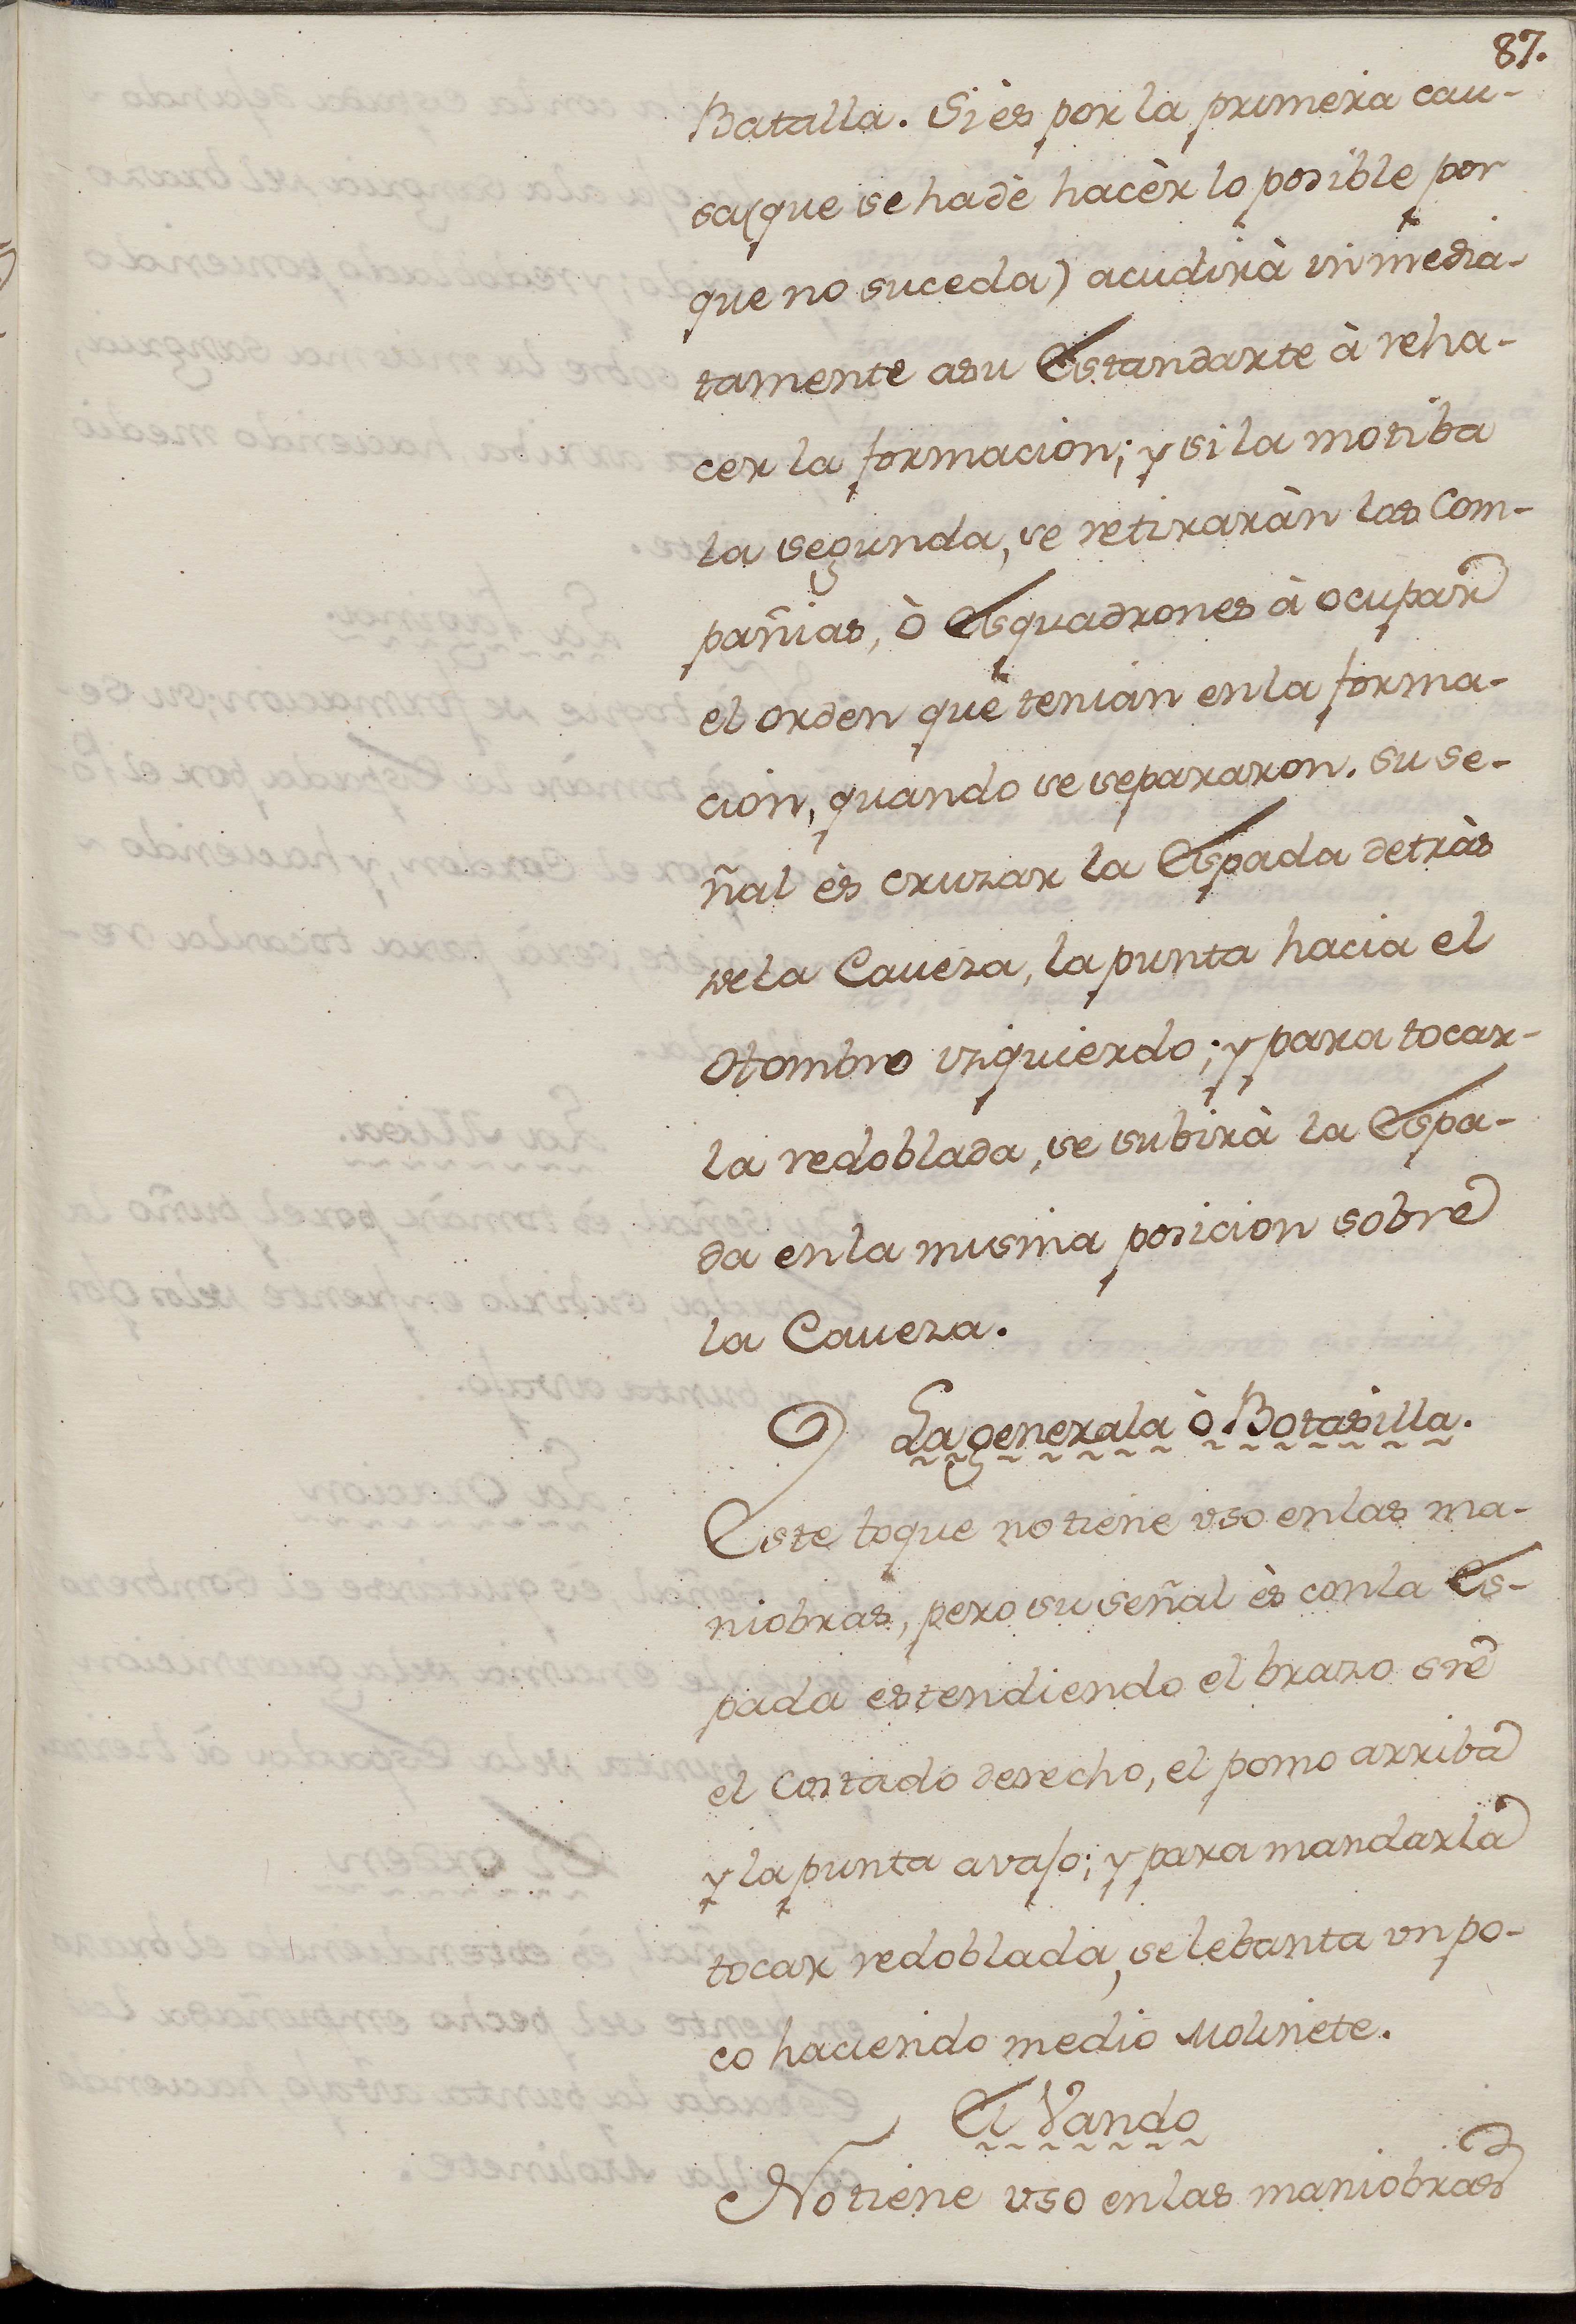 87.
Batalla. Si ès por la primera cau-
sa (que se hadè hacèr lo posible por
que no suceda) acudirà inmedia-
tamente asu Estandarte à reha-
cer la formacion; y si la motiba
la segunda, se retiraràn las Com-
pañias, ò Esquadrones à ocupar
el orden que tenian enla forma-
cion, quando se separaron. su se-
ñal ès cruzar la Espada detràs
dela Caveza, la punta hacia el
Hombro izquierdo; y para tocar-
la redoblada, se subirà la Espa-
da enla misma posicion sobre
la Caveza.
La generala ò Botasilla.
Este toque no tiene uso enlas ma-
niobras, pero su señal ès conla Es-
pada estendiendo el brazo sre
el Costado derecho, el pomo arriba
y la punta avajo; y para mandarla
tocar redoblada, se lebanta un po-
co haciendo medio Molinete.
El Vando
No tiene uso enlas maniobras